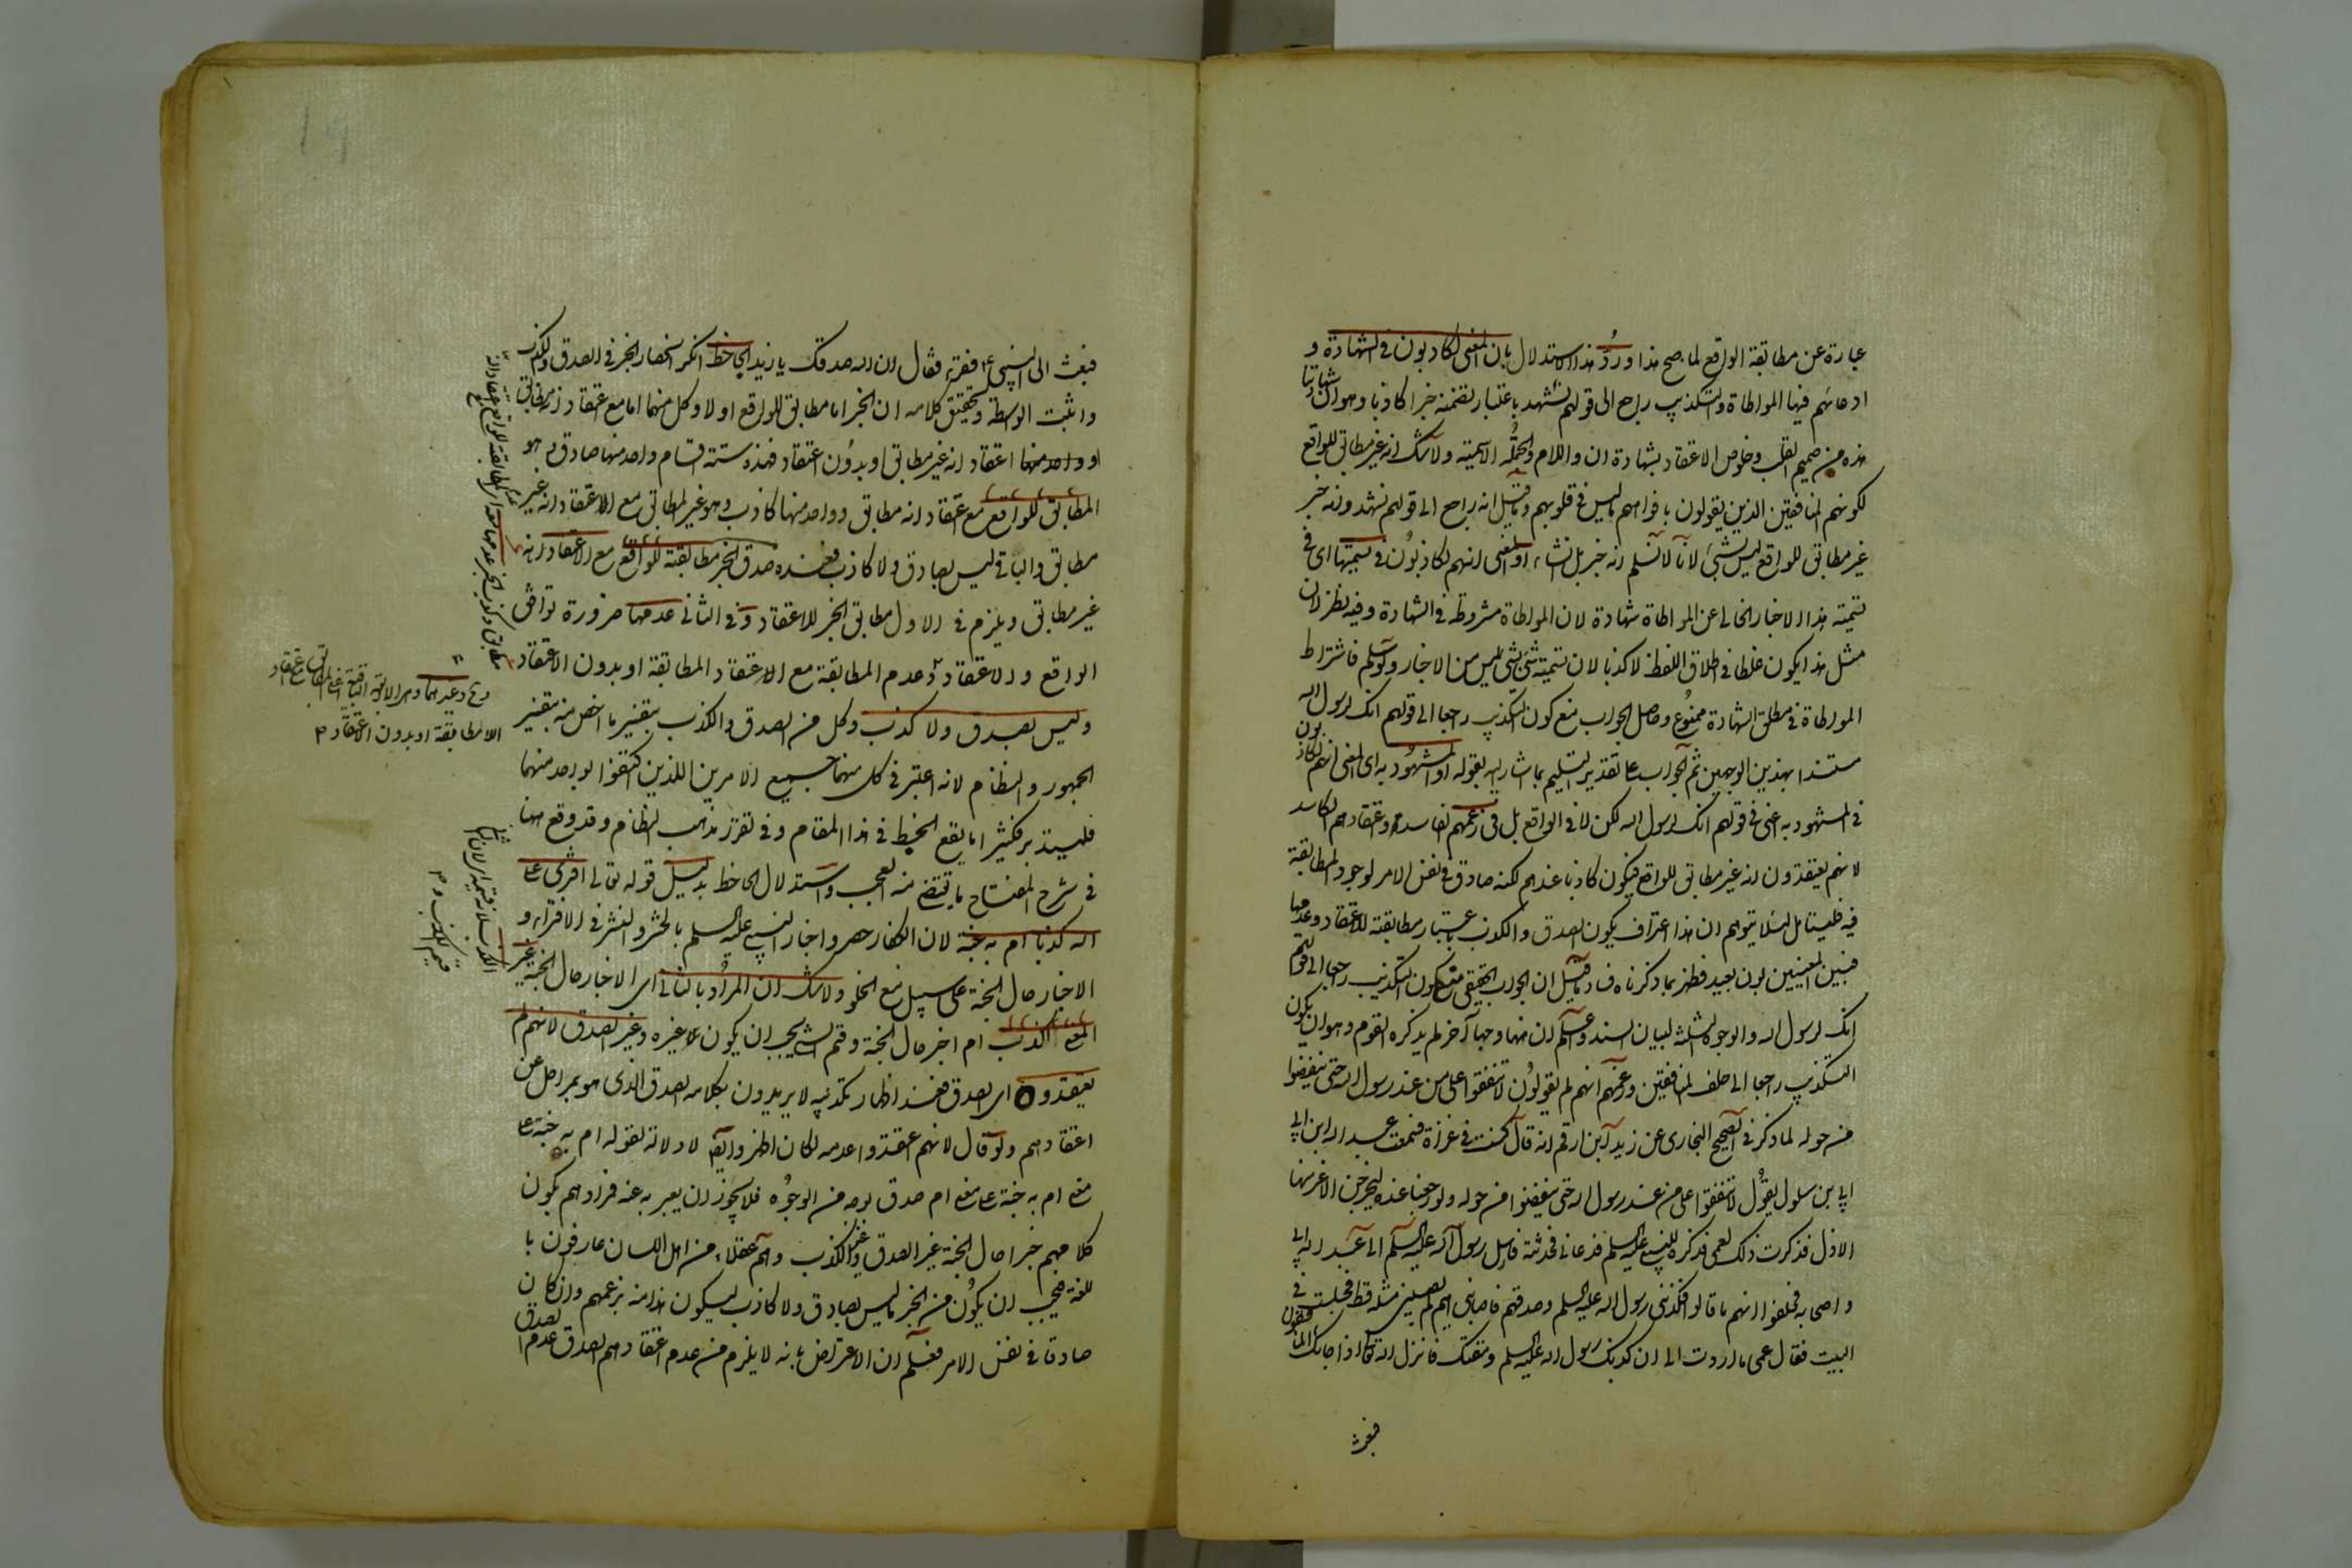 عبارة عن مطابقة الواقع لما صح هذا ورد هذا الاستدلال بان المعنى لكاذبون فى الشهادة و
ادعائهم فيها المواطاة والتكذيب راجع الى قولهم نشهد باعتبار تضمنه خبرا كاذبا وهو ان شهادتنا
هذه من صميم القلب وخلوص الاعتقاد بشهادة ان واللام والجملة الاسمية ولا شك انه غير مطابق للواقع
لكونهم المنافقين الذين يقولون بافواههم ما ليس فى قلوبهم وقيل انه راجع الى قولهم نشهد وانه خبر
غير مطابق للواقع ليس بشئ لانا لا نسلم انه خبر بل انشاء او المعنى انهم لكاذبون فى تسميتها اى فى
تسمية هذا الاخبار الخالى عن المواطاة شهادة لان المواطاة مشروطة فى الشهادة وفيه نظر لان
مثل هذا يكون غلطا فى اطلاق اللفظ لا كذبا لان تسمية شئ بشئ ليس من الاخبار ولو سلم فاشتراط
المواطاة فى مطلق الشهادة ممنوع وحاصل الجواب منع كون التكذيب راجعا الى قولهم انك لرسول الله
مستندا بهذين الوجهين ثم الجواب على تقدير التسليم بما اشار اليه بقوله او المشهود به اى المعنى انهم لكاذبون
فى المشهود به اعنى فى قولهم انك لرسول الله لكن لا فى الواقع بل فى زعمهم الفاسد واعتقادهم الكاسد
لانهم يعتقدون انه غير مطابق للواقع فيكون كاذبا عندهم لكنه صادق فى نفس الامر لوجود المطابقة
فيه فليتامل لئلا يتوهم ان هذا اعتراف بكون الصدق والكذب باعتبار مطابقة الاعتقاد وعدمها
فبين المعنيين بون بعيد فظهر بما ذكرناه فساد ما قيل ان الجواب الحقيقى منع كون التكذيب راجعا الى قولهم
انك لرسول الله والوجوه الثلثة لبيان السند واعلم ان ههنا وجها آخر لم يذكره القوم وهو ان يكون
التكذيب راجعا الى حلف المنافقين وزعمهم انهم لم يقولوا لا تنفقوا على من عند رسول الله حتى ينفضوا
من حوله لما ذكر فى الصحيح البخارى عن زيد ابن ارقم انه قال كنت فى غزاة فسمعت عبد الله ابن ابى
ابى بن سلول يقول لا تنفقوا على من عند رسول الله حتى ينفضوا من حوله ولو رجعنا عنده ليخرجن الاعز منها
الاذل فذكرت ذلك لعمى فذكره للنبى عليه السلم فدعانى فحدثته فارسل رسول الله عليه السلم الى عبد الله ابن ابى
واصحابه فحلفوا انهم ما قالوا فكذبنى رسول الله عليه السلم وصدقهم فاصابنى هم لم يصبنى مثله قط فجلست فى
البيت فقال عمى ما اردت الى ان كذبك رسول الله عليه السلم ومقتك فانزل الله تعالى اذا جاءك المنافقون
فبعث
فبعث الى النبى ع م فقرء فقال ان الله صدقك يا زيد الجاحظ انكر انحصار الخبر فى الصدق والكذب
واثبت الواسطة وتحقيق كلامه ان الخبر اما مطابق للواقع او لا وكل منهما اما مع اعتقاد انه مطابق
او واحد منهما اعتقاد انه غير مطابق او بدون اعتقاد فهذه ستة اقسام واحد منها صادق وهو
المطابق للواقع مع اعتقاد انه مطابق وواحد منها كاذب وهو غير المطابق مع الاعتقاد انه غير
مطابق والباقى ليس بصادق ولا كاذب فعنده صدق الخبر مطابقته للواقع مع الاعتقاد انه
غير مطابق ويلزم فى الاول مطابق الخبر للاعتقاد وفى الثانى عدمها ضرورة توافق
الواقع والاعتقاد وعدم المطابقة مع الاعتقاد المطابقة او بدون الاعتقاد
وليس بصدق ولا كذب وكل من الصدق والكذب بتفسيره اخص منه بتفسير
الجمهور والنظام لانه اعتبر فى كل منهما جميع الامرين اللذين اكتفوا بواحد منهما
فليتدبر فكثيرا ما يقع الخبط فى هذا المقام وفى تقرير مذهب النظام وقد وقع ههنا
فى شرح المفتاح ما يقتضى منه العجب واستدلال الجاحظ بدليل قوله تعالى افترى على
الله كذبا ام به جنة لان الكفار حصروا اخبار النبى عليه السلم بالحشر والنشر فى الافتراء و
الاخبار حال الجنة على سبيل منع الخلو ولا شك ان المراد بالثانى اى الاخبار حال الجنة غير
الكذب ام اخبر حال الجنة وقسم الشئ يجب ان يكون غيره وغير الصدق لانهم لم
يعتقدوه اى الصدق فعند اظهار تكذيبه لا يريدون بكلامه الصدق الذى هو بمراحل عن
اعتقادهم ولو قال لانهم اعتقدوا عدمه لكان اظهر وايضا لا دلالة لقوله ام به جنة على
معنى ام به جنة على معنى ام صدق بوجه من الوجوه فلا يجوز ان يعبر به عنه فمرادهم بكون
كلامهم خبرا حال الجنة غير الصدق وغير الكذب وهم عقلاء من اهل اللسان عارفون با
للغة فيجب ان يكون من الخبر ما ليس بصادق ولا كاذب ليكون هذا منه بزعمهم وان كان
صادقا فى نفس الامر فعلم ان الاعتراض بانه لا يلزم من عدم اعتقادهم الصدق عدم الصدق